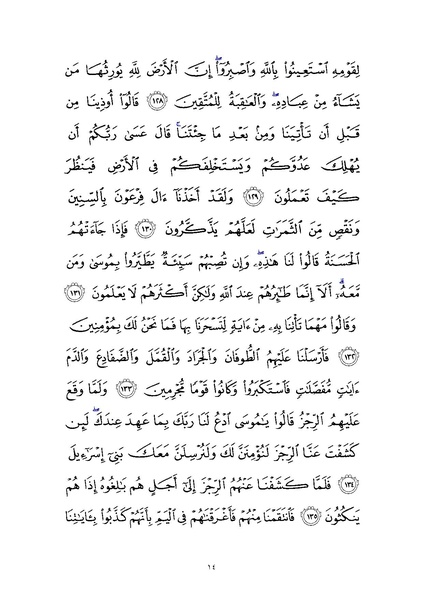 لِقَوْمِهِ ٱسْتَعِينُوا۟ بِٱللَّهِ وَٱصْبِرُوٓا۟ ۖ إِنَّ ٱلْأَرْضَ لِلَّهِ يُورِثُهَا مَن
يَشَآءُ مِنْ عِبَادِهِۦ ۖ وَٱلْعَٰقِبَةُ لِلْمُتَّقِينَ ١٢٨ قَالُوٓا۟ أُوذِينَا مِن
قَبْلِ أَن تَأْتِيَنَا وَمِنۢ بَعْدِ مَا جِئْتَنَا ۚ قَالَ عَسَىٰ رَبُّكُمْ أَن
يُهْلِكَ عَدُوَّكُمْ وَيَسْتَخْلِفَكُمْ فِى ٱلْأَرْضِ فَيَنظُرَ
كَيْفَ تَعْمَلُونَ ١٢٩ وَلَقَدْ أَخَذْنَآ ءَالَ فِرْعَوْنَ بِٱلسِّنِينَ
وَنَقْصٍ مِّنَ ٱلثَّمَرَٰتِ لَعَلَّهُمْ يَذَّكَّرُونَ ١٣٠ فَإِذَا جَآءَتْهُمُ
ٱلْحَسَنَةُ قَالُوا۟ لَنَا هَٰذِهِۦ ۖ وَإِن تُصِبْهُمْ سَيِّئَةٌ يَطَّيَّرُوا۟ بِمُوسَىٰ وَمَن
مَّعَهُۥٓ ۗ أَلَآ إِنَّمَا طَٰٓئِرُهُمْ عِندَ ٱللَّهِ وَلَٰكِنَّ أَكْثَرَهُمْ لَا يَعْلَمُونَ ١٣١
وَقَالُوا۟ مَهْمَا تَأْتِنَا بِهِۦ مِنْ ءَايَةٍ لِّتَسْحَرَنَا بِهَا فَمَا نَحْنُ لَكَ بِمُؤْمِنِينَ
١٣٢ فَأَرْسَلْنَا عَلَيْهِمُ ٱلطُّوفَانَ وَٱلْجَرَادَ وَٱلْقُمَّلَ وَٱلضَّفَادِعَ وَٱلدَّمَ
ءَايَٰتٍ مُّفَصَّلَٰتٍ فَٱسْتَكْبَرُوا۟ وَكَانُوا۟ قَوْمًا مُّجْرِمِينَ ١٣٣ وَلَمَّا وَقَعَ
عَلَيْهِمُ ٱلرِّجْزُ قَالُوا۟ يَٰمُوسَى ٱدْعُ لَنَا رَبَّكَ بِمَا عَهِدَ عِندَكَ ۖ لَئِن
كَشَفْتَ عَنَّا ٱلرِّجْزَ لَنُؤْمِنَنَّ لَكَ وَلَنُرْسِلَنَّ مَعَكَ بَنِىٓ إِسْرَٰٓءِيلَ
١٣٤ فَلَمَّا كَشَفْنَا عَنْهُمُ ٱلرِّجْزَ إِلَىٰٓ أَجَلٍ هُم بَٰلِغُوهُ إِذَا هُمْ
يَنكُثُونَ ١٣٥ فَٱنتَقَمْنَا مِنْهُمْ فَأَغْرَقْنَٰهُمْ فِى ٱلْيَمِّ بِأَنَّهُمْ كَذَّبُوا۟ بِـَٔايَٰتِنَا
١٤